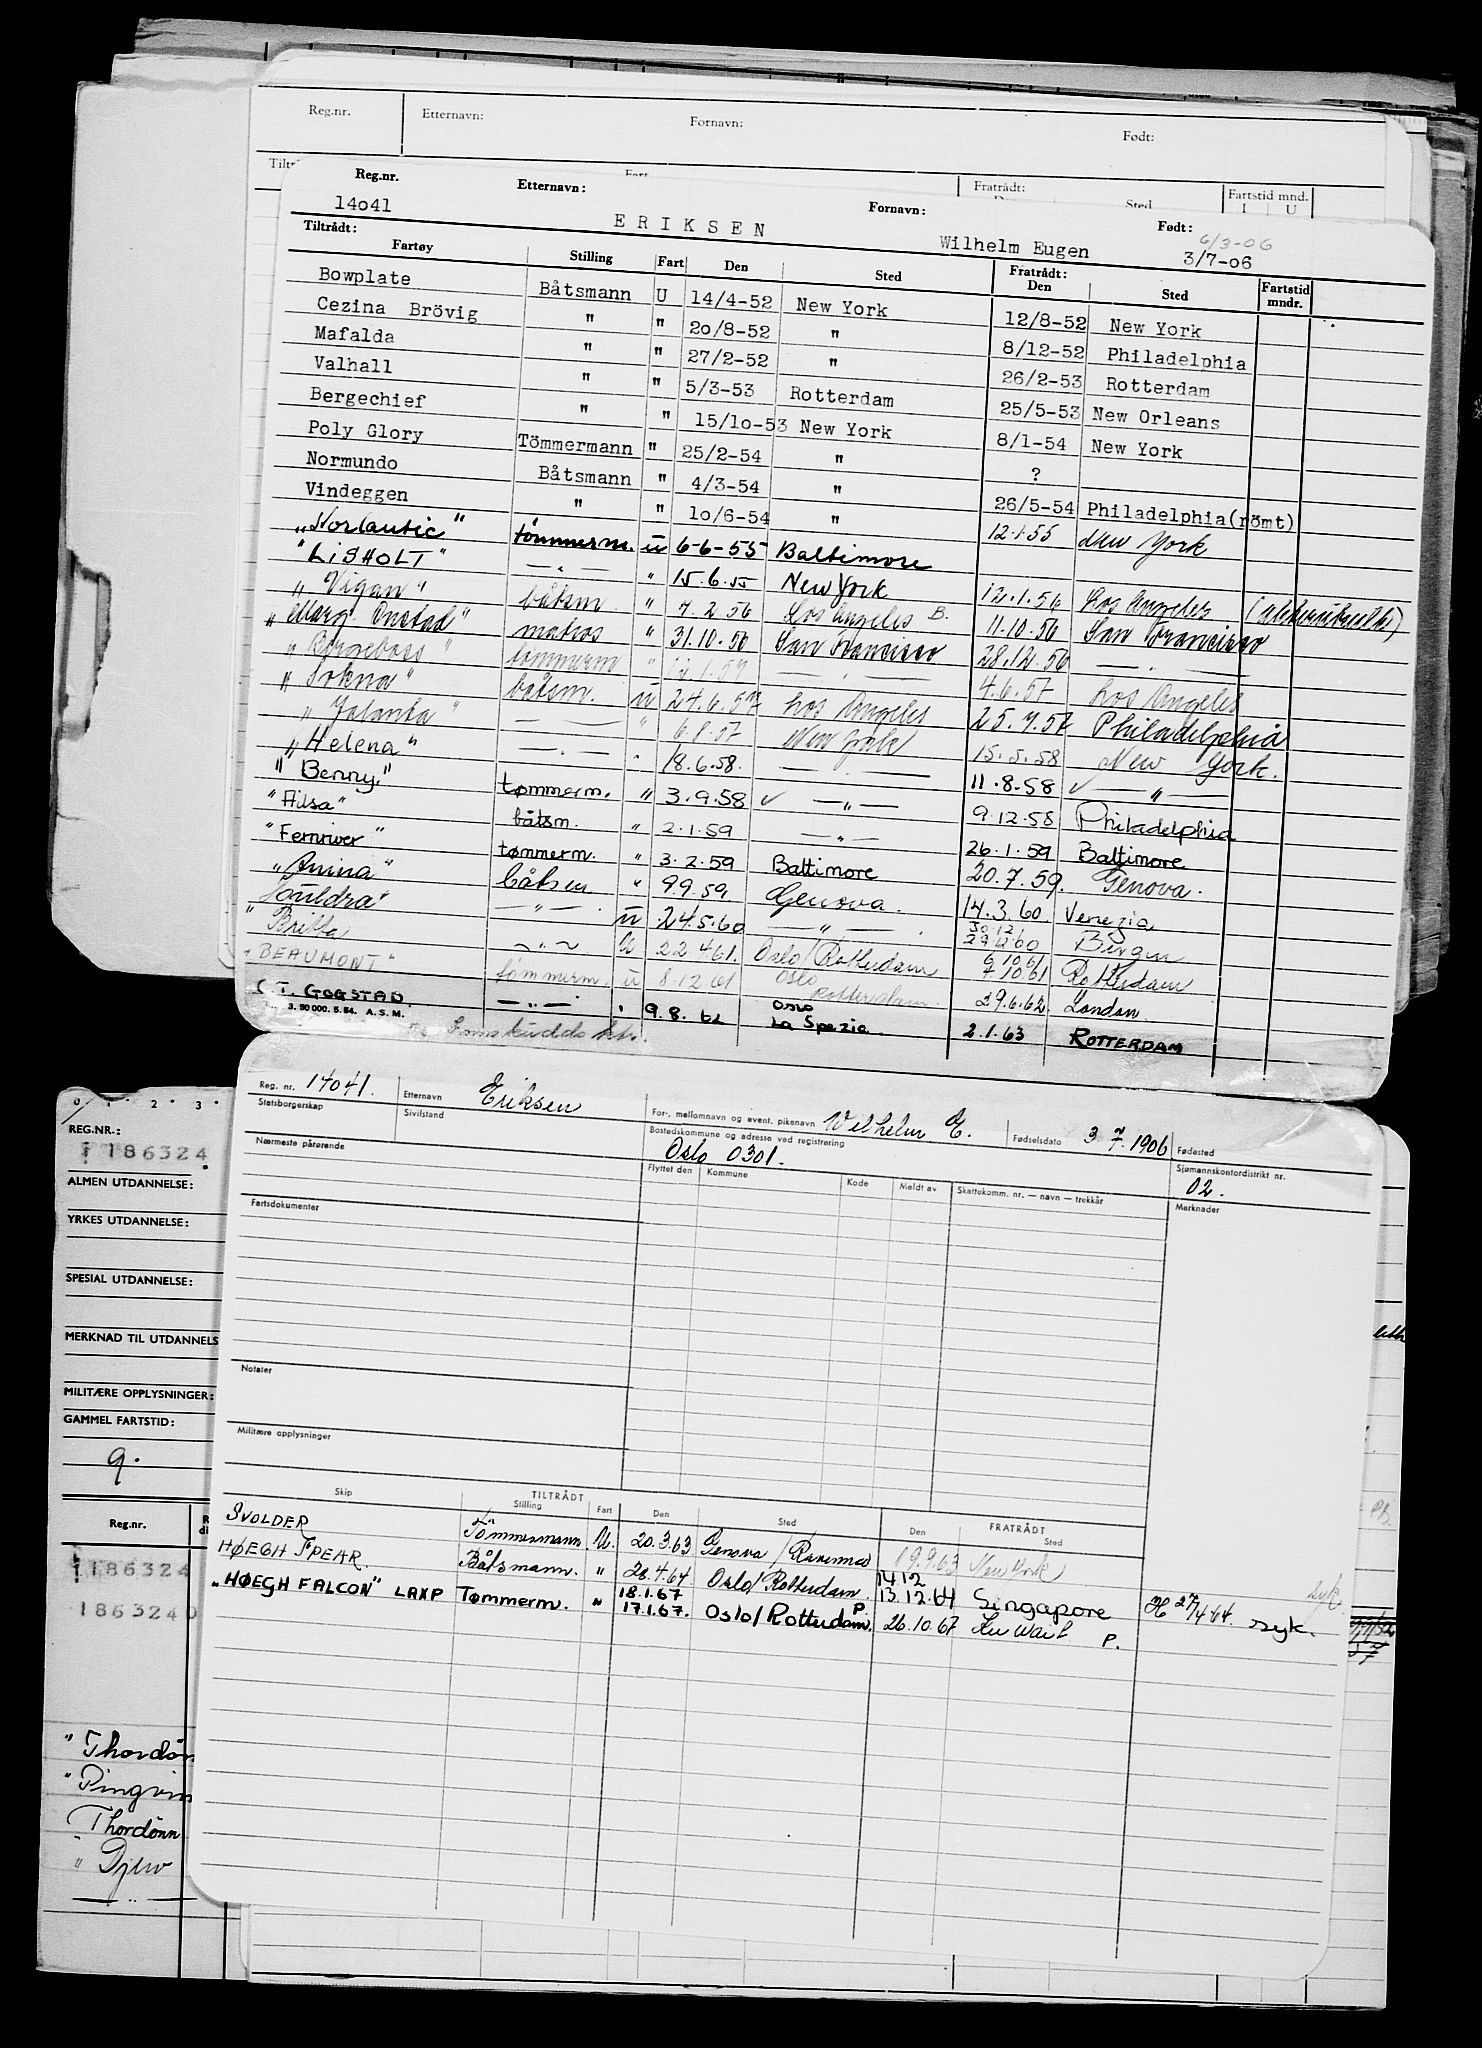 Reg.nr. Etternavn: Fornavn: Født:
Fratrådt: Sted Fartstid mnd. I U
Reg.nr. Etternavn: Fornavn: Født:
14o41 ERIKSEN Wilhelm Eugen 6/3-06 3/7-06
Tiltrådt: Fartøy Stilling Fart Den Sted Fratrådt: Den Sted Fartstid mndr.
Bowplate Båtsmann U 14/4-52 New York 12/8-52 New York
Cezina Brövig " " 2o/8-52 " 8/12-52 Philadelphia
Mafalda " " 27/2-52 " 26/2-53 Rotterdam
Valhall " " 5/3-53 Rotterdam 25/5-53 New Orleans
Bergechief " " 15/1o-53 New York 8/1-54 New York
Poly Glory Tömmermann " 25/2-54 " ?
Normundo Båtsmann " 4/3-54 " 26/5-54 Philadelphia(römt)
Vindeggen " " 1o/6-54 " 12.1.55 New York
"Norlantic" tömmerm. u 6-6-55 Baltimore
"LISHOLT" — " — " 15.6.55 New York 12.1.56 Los Angeles
"Vigan" båtsm. " 7.2.56 Los Angeles B. 11.10.56 San Francisco
"Marg. Onstad" matros " 31.10.56 San Francisco 28.12.56 — " —
"Bergeboss" tömmerm " 12.1.57 — " — 4.6.57 Los Angeles
"Sokna" båtsm. u 24.6.57 Los Angeles 25.7.57 Philadelphia
"Jalanta" — " — " 6.8.57 New York 15.5.58 New York.
"Helena" — " — " 18.6.58. — " — 11.8.58 — " —
"Benny" tømmerm. " 3.9.58 — " — 9.12.58 Philadelphia
"Ailsa" båtsm. " 2.1.59 — " — 26.1.59 Baltimore
"Fernriver" tømmerm. " 3.2.59 Baltimore 20.7.59. Genova.
"Anina" båtsm " 9.9.59 Genova. 14.3.60 Venezia
— " — u 24.5.60 — " — 30.12 29.12.60 Bergen
"Britta — " — U 22.4.61. Oslo/Rotterdam 6.10.61 7.10.61 Rotterdam
"BEAUMONT" tømmerm. u 8.12.61 Oslo Rotterdam. 29.6.62 London
C.T. GOGSTAD. — " — " 9.8.62 Oslo La Spezia. 2.1.63 ROTTERDAM
3. 50 000. 5. 54. A.S.M.
Reg. nr. 14041. Etternavn Eriksen For-, mellomnavn og event. pikenavn Wilhelm E. Fødselsdato 3.7.1906 Fødested
Statsborgerskap Sivilstand Bostedskommune og adresse ved registrering Oslo 0301. Sjømannskontordistrikt nr. 02.
Nærmeste pårørende Flyttet den Kommune Kode Meldt av Skattekomm. nr. — navn — trekkår Merknader
Fartsdokumenter
Notater
Militære opplysninger
Skip TILTRÅDT Stilling Fart Den Sted Den FRATRÅDT Sted
SVOLDER Tömmermann U. 20.3.63 Genova/Ravenna 19.9.63 New York syk.
HØEGH SPEAR. Båtsmann. " 28.4.64. Oslo/Rotterdam 14.12 13.12.64 Singapore 27/4 64. syk.
"HØEGH FALCON" LAXP Tømmerm. " 18.1.67 17.1.67. Oslo/Rotterdam P. 26.10.67 Kuwait P.
0 1 2 3
REG.NR.:
186324
ALMEN UTDANNELSE:
YRKES UTDANNELSE:
SPESIAL UTDANNELSE:
MERKNAD TIL UTDANNELS
MILITÆRE OPPLYSNINGER:
GAMMEL FARTSTID:
9.
Reg.nr.
186324
1863240
"Thordön
"Pingvin
Thordönn
"Djerv
— " —